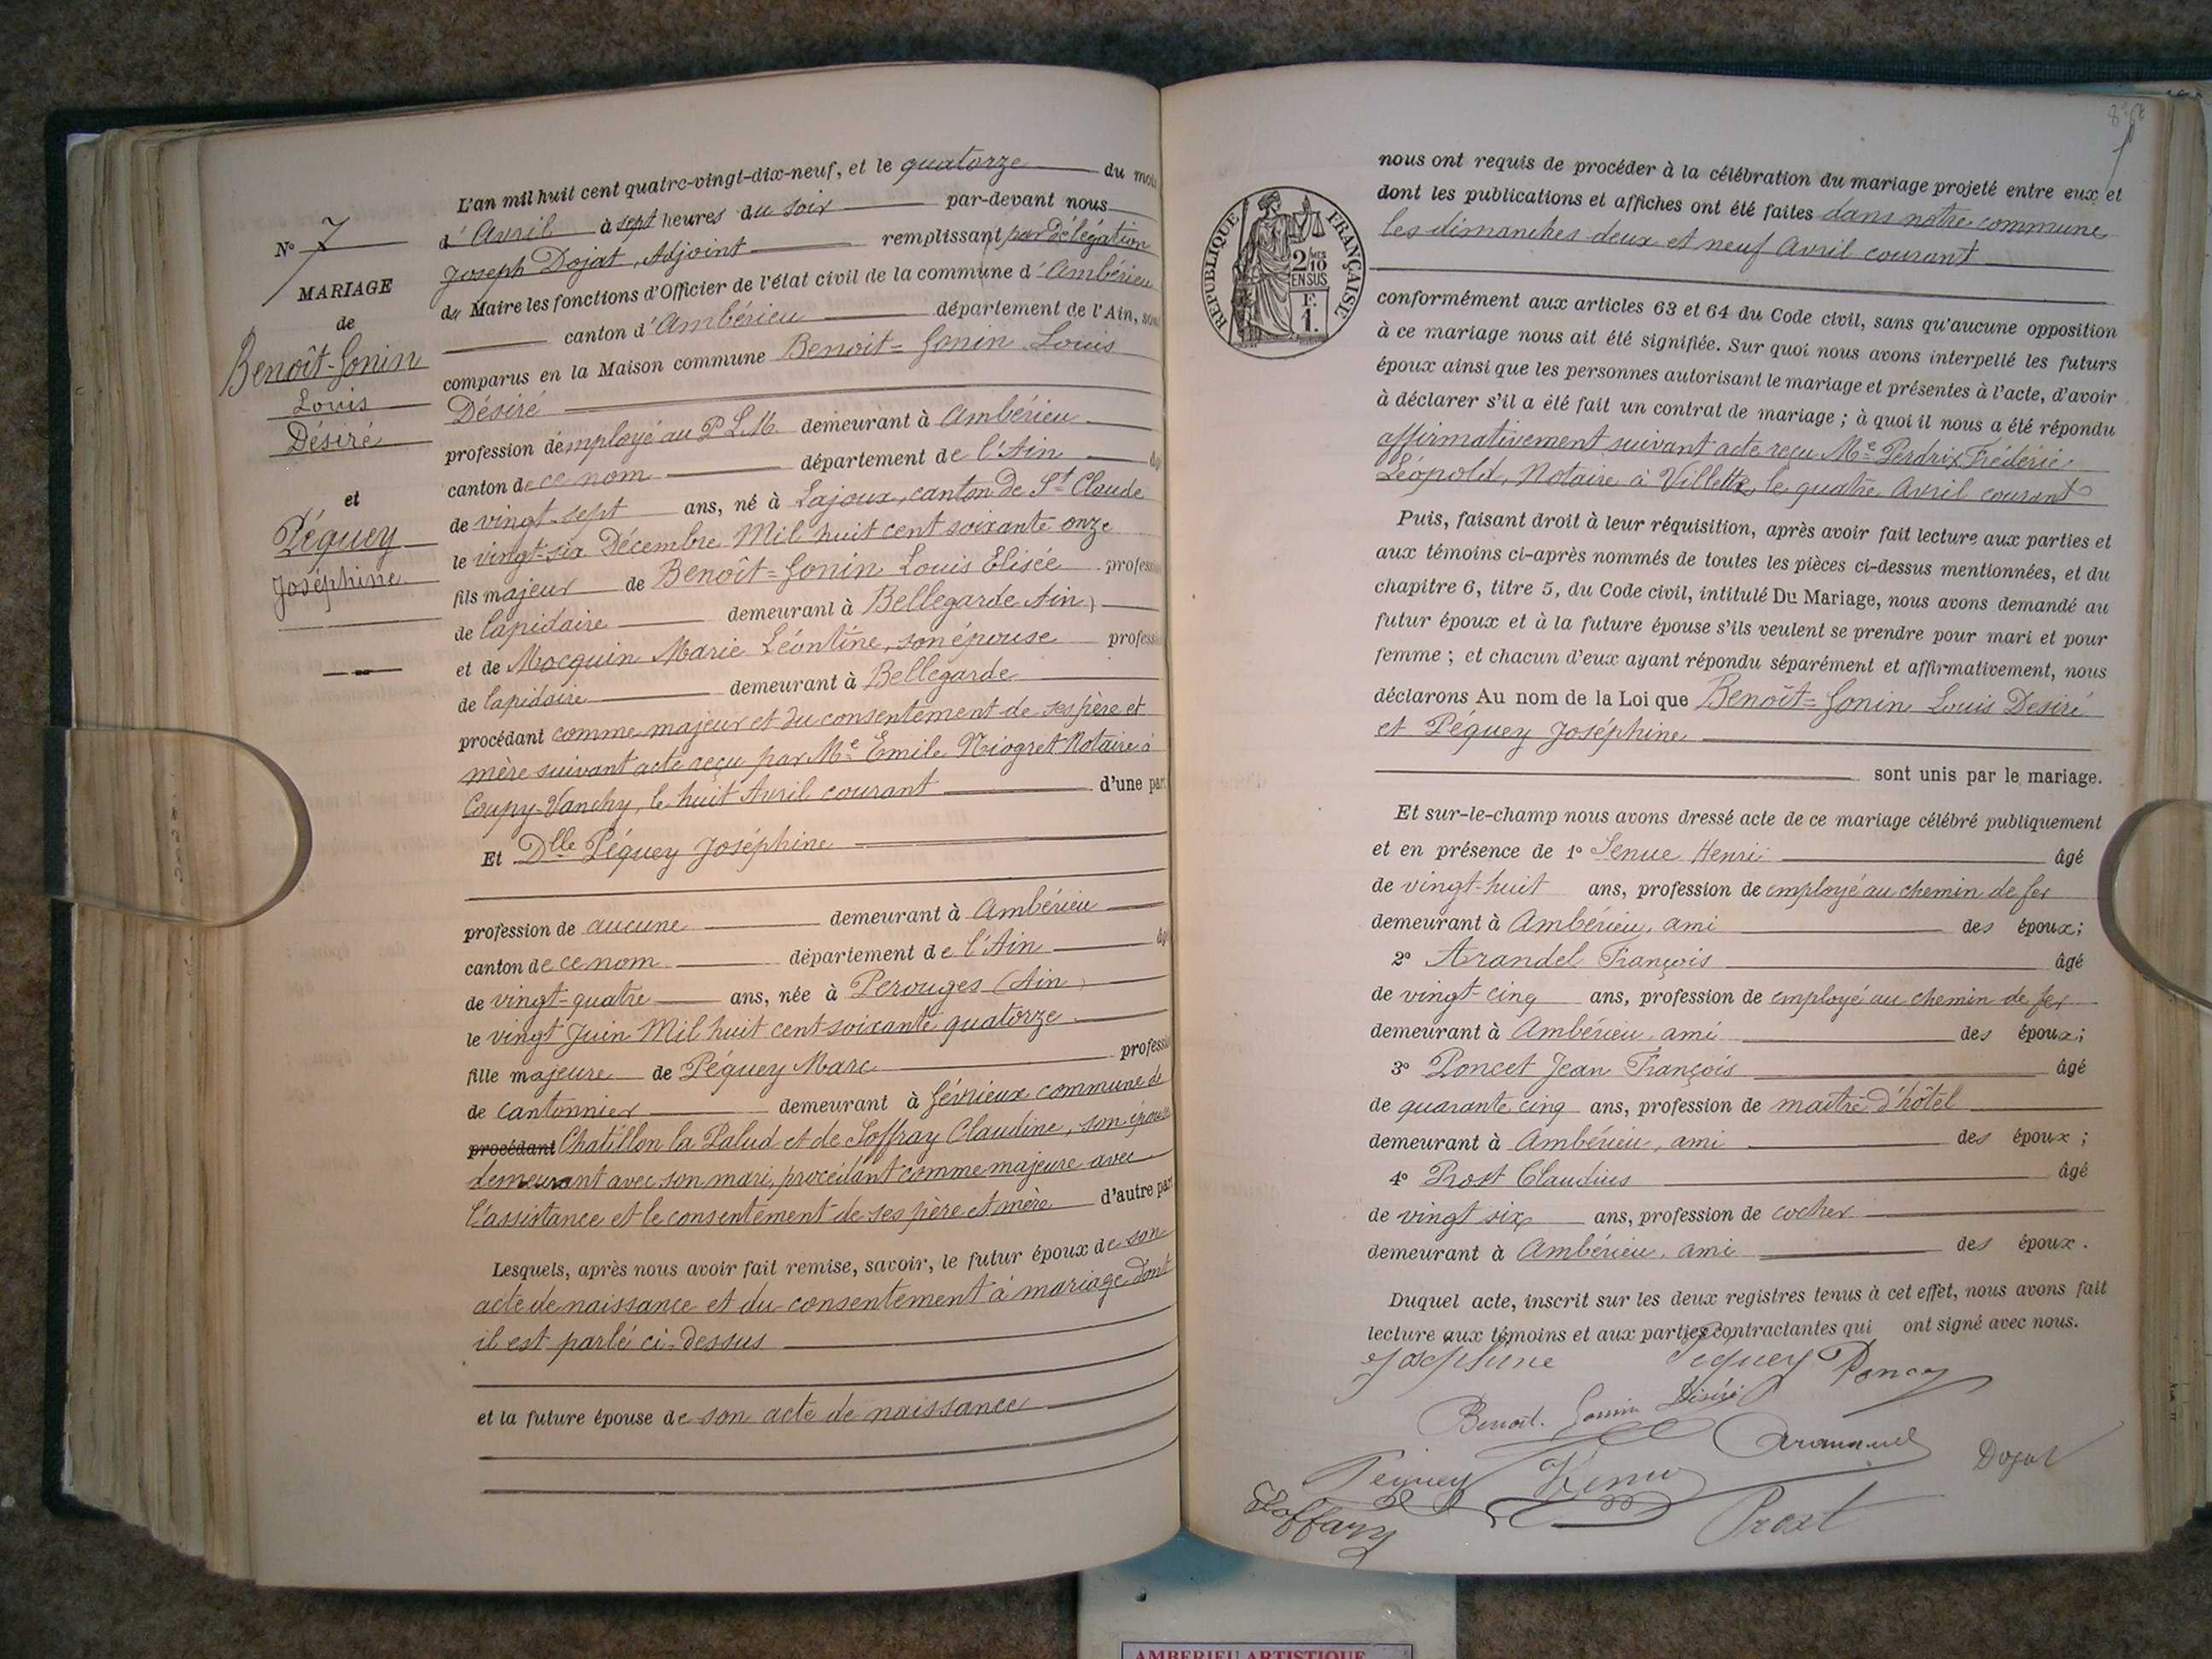 N° 7
MARIAGE
de
Benoît-Gonin
Louis
Désiré
et
Péguey
Joséphine
L'an mil huit cent quatre-vingt-dix-neuf, et le quatorze du mois
d'Avril à sept heures du soir par-devant nous
Joseph Dojat, Adjoint remplissant par délégation
du Maire les fonctions d'Officier de l'état civil de la commune d'Ambérieu
canton d'Ambérieu département de l'Ain, sont
comparus en la Maison commune Benoit=Gonin Louis
Désiré
profession d'employé au P L M. demeurant à Ambérieu
canton de ce nom département de l'Ain âgé
de vingt-sept ans, né à Lajoux, canton de St Claude
le vingt-six Décembre Mil huit cent soixante onze
fils majeur de Benoît=Gonin Louis Elisée profession
de lapidaire demeurant à Bellegarde Ain)
et de Mocquin Marie Léontine, son épouse profession
de lapidaire demeurant à Bellegarde
procédant comme majeur et du consentement de ses père et
mère suivant acte reçu par Me Emile Niogret Notaire à
Coupy-Vanchy, le huit Avril courant d'une part
Et Dlle Péguey Joséphine
profession de aucune demeurant à Ambérieu
canton de ce nom département de l'Ain âgé
de vingt-quatre ans, née à Perouges (Ain)
le vingt Juin Mil huit cent soixante quatorze
fille majeure de Péguey Marc profession
de cantonnier demeurant à Gévrieux commune de
procédant Chatillon la Palud et de Joffray Claudine, son épouse
demeurant avec son mari, procédant comme majeure avec
l'assistance et le consentement de ses père et mère d'autre part
Lesquels, après nous avoir fait remise, savoir, le futur époux de son
acte de naissance et du consentement à mariage dont
il est parlé ci-dessus
et la future épouse de son acte de naissance
RÉPUBLIQUE FRANÇAISE
2 MES
10
EN SUS
F.
1.
nous ont requis de procéder à la célébration du mariage projeté entre eux et
dont les publications et affiches ont été faites dans notre commune
les dimanches deux et neuf Avril courant
conformément aux articles 63 et 64 du Code civil, sans qu'aucune opposition
à ce mariage nous ait été signifiée. Sur quoi nous avons interpellé les futurs
époux ainsi que les personnes autorisant le mariage et présentes à l'acte, d'avoir
à déclarer s'il a été fait un contrat de mariage ; à quoi il nous a été répondu
affirmativement suivant acte reçu Me Perdrix Fréderic
Léopold, Notaire à Villette, le quatre Avril courant
Puis, faisant droit à leur réquisition, après avoir fait lecture aux parties et
aux témoins ci-après nommés de toutes les pièces ci-dessus mentionnées, et du
chapitre 6, titre 5, du Code civil, intitulé Du Mariage, nous avons demandé au
futur époux et à la future épouse s'ils veulent se prendre pour mari et pour
femme ; et chacun d'eux ayant répondu séparément et affirmativement, nous
déclarons Au nom de la Loi que Benoît=Gonin Louis Desiré
et Péguey Joséphine
sont unis par le mariage.
Et sur-le-champ nous avons dressé acte de ce mariage célébré publiquement
et en présence de 1° Henri âgé
de vingt-huit ans, profession de employé au chemin de fer
demeurant à Ambérieu, ami des époux;
2° Arandel François âgé
de vingt-cinq ans, profession de employé au chemin de fer
demeurant à Ambérieu, ami des époux;
3° Poncet Jean François âgé
de quarante cinq ans, profession de maître d'hôtel
demeurant à Ambérieu, ami des époux ;
4° Prost Claudius âgé
de vingt six ans, profession de cocher
demeurant à Ambérieu, ami des époux.
Duquel acte, inscrit sur les deux registres tenus à cet effet, nous avons fait
lecture aux témoins et aux parties contractantes qui ont signé avec nous.
Joséphine Peguey Poncet
Benoit. Gonin Désiré
Peguey Dojat
Prost
AMBERIEU ARTISTIQUE